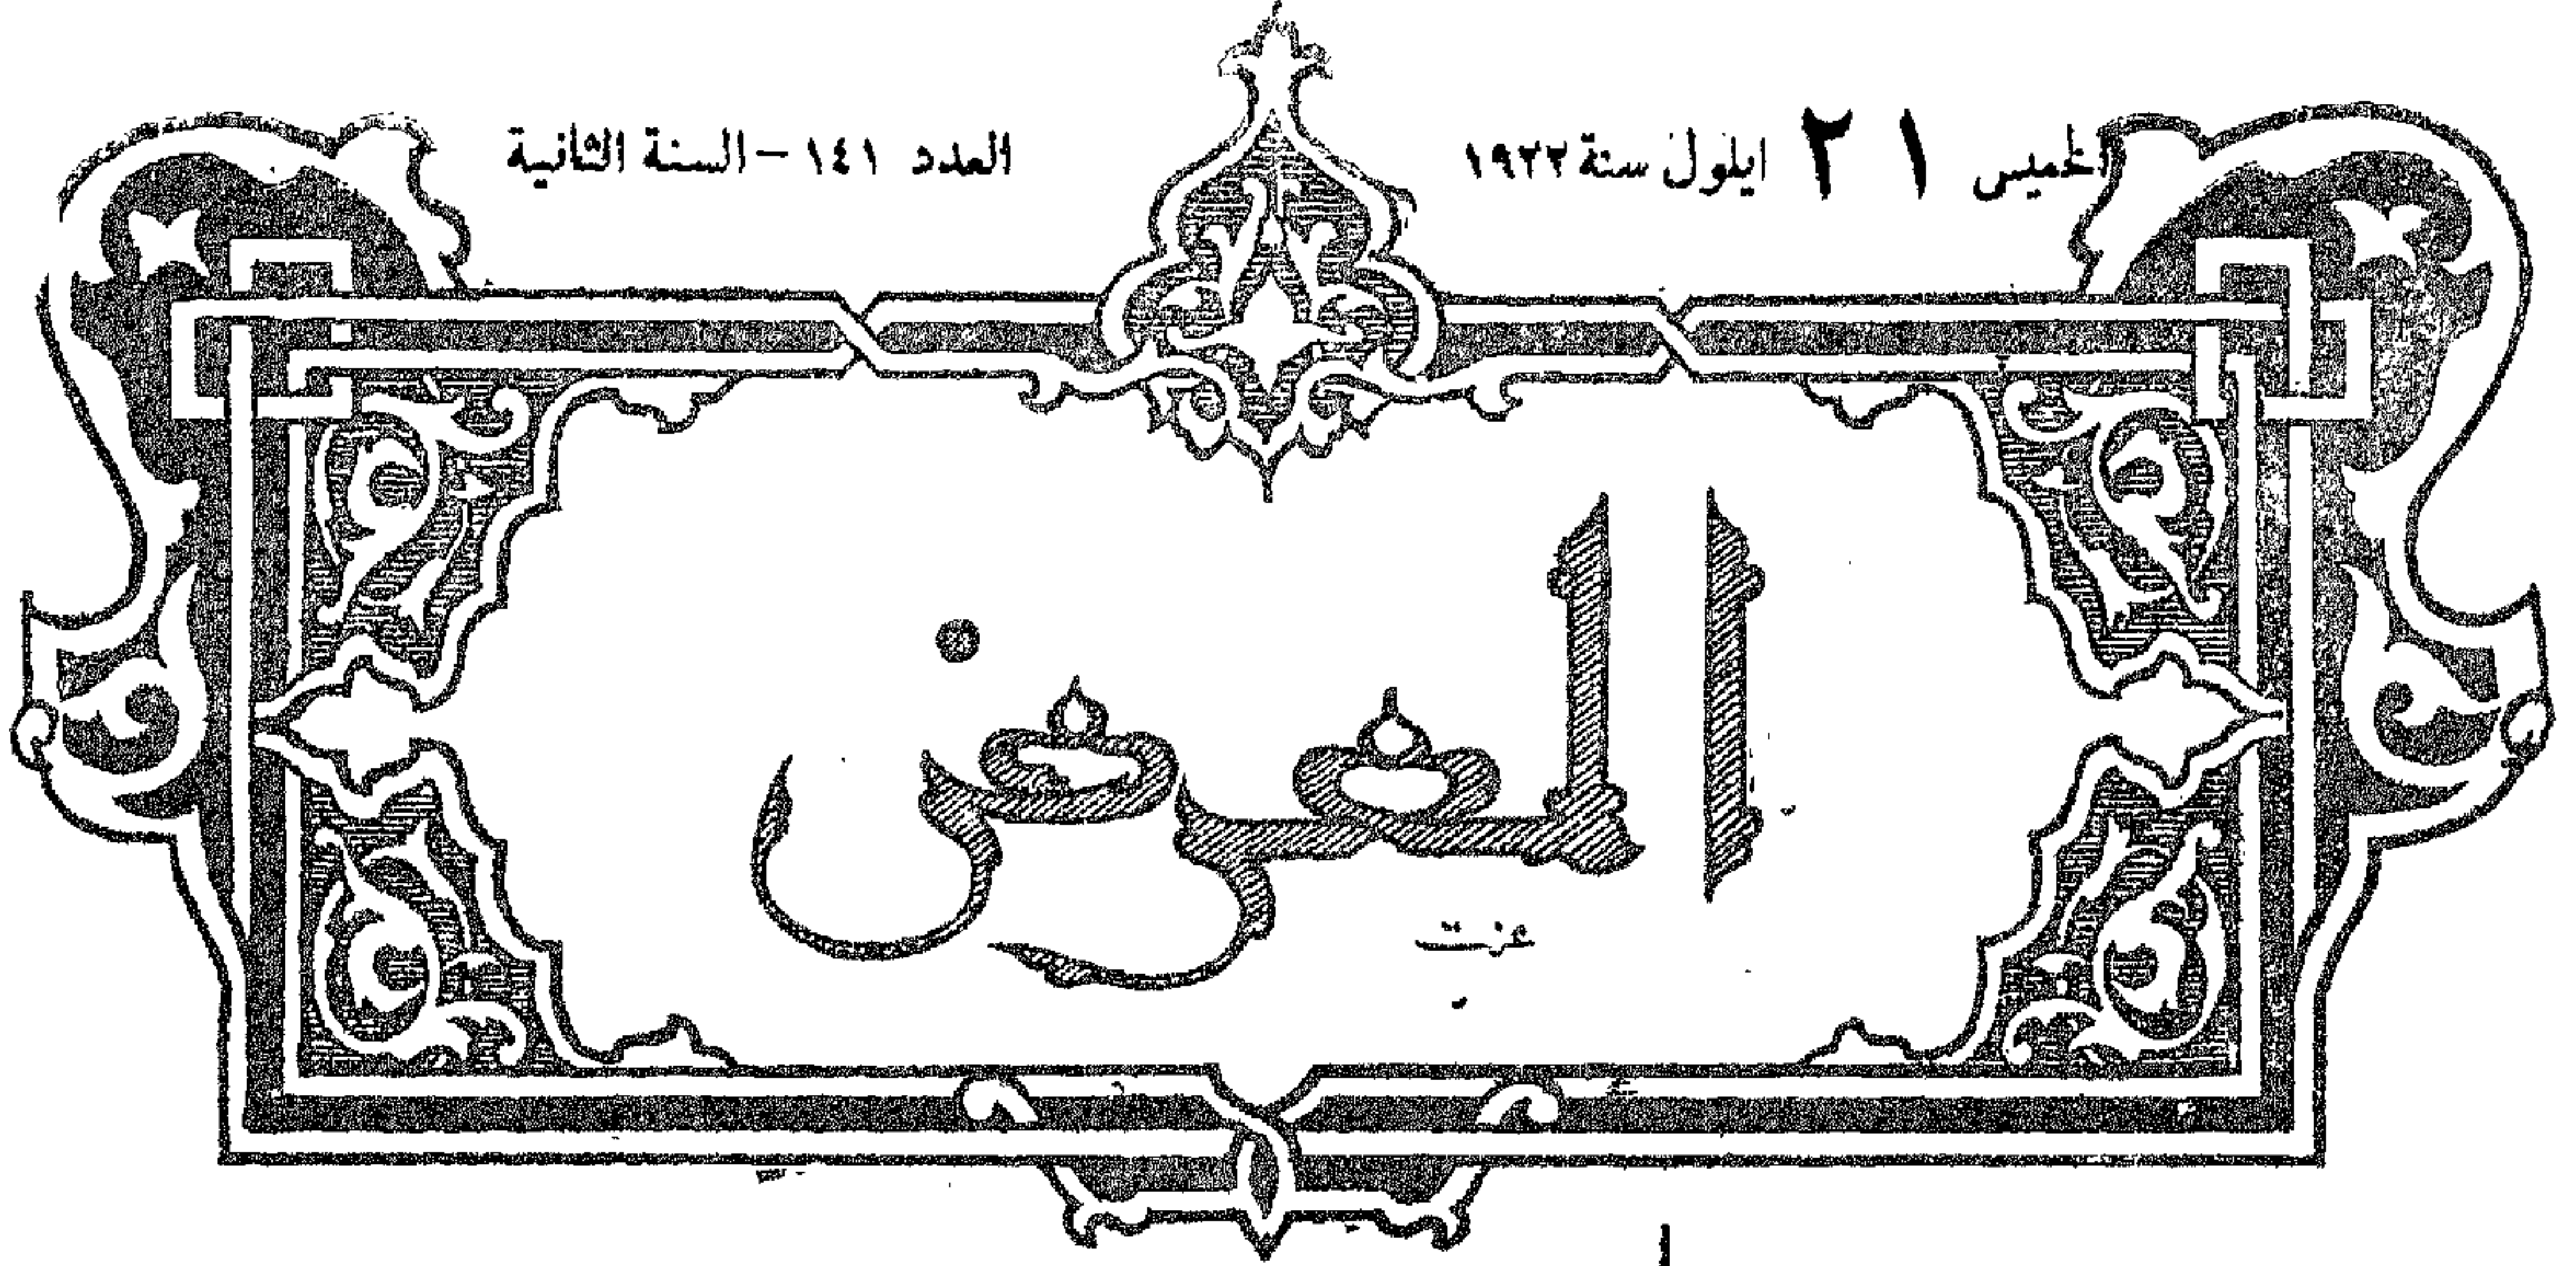 الخميس ٢١ ايلول سنة ١٩٢٢
العدد ١٤١ – السنة الثانية
المعرض
عزت